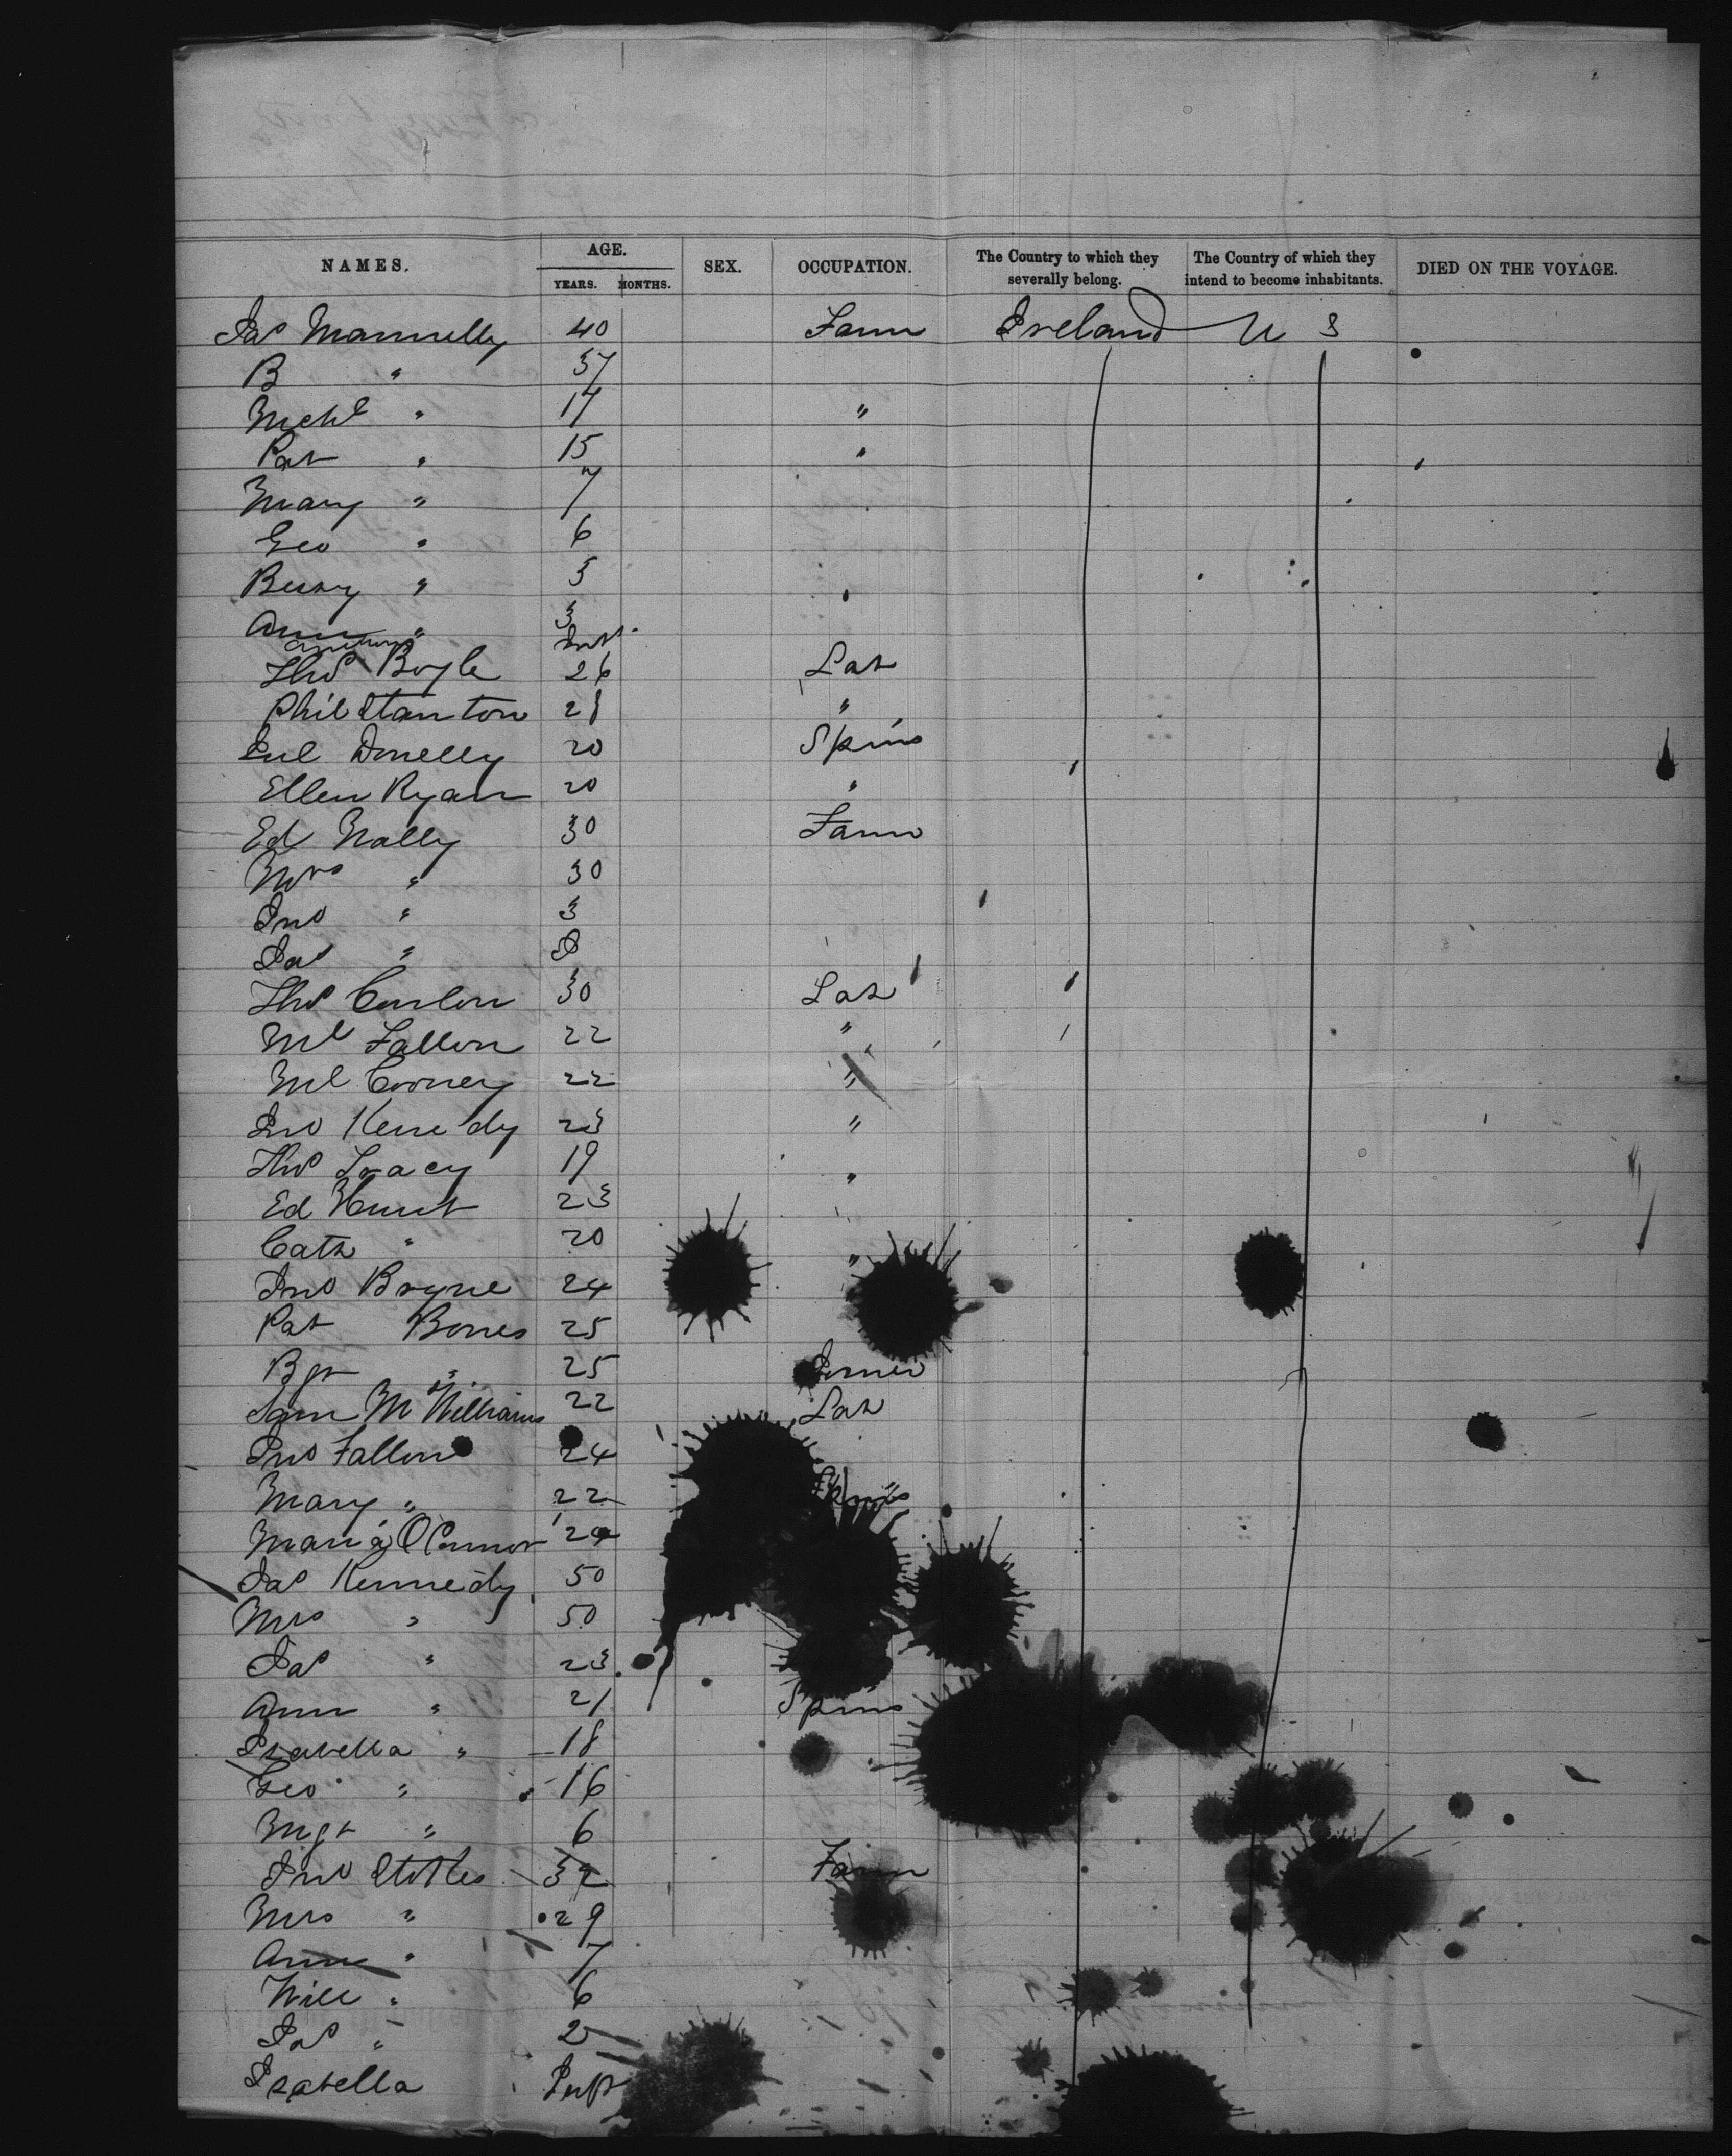 NAMES. AGE. SEX. OCCUPATION. The Country to which they severally belong. The Country of which they intend to become inhabitants. DIED ON THE VOYAGE.
YEARS. MONTHS.
Jas Mannelly 40 Farm Ireland U S
B " 37
Mchl " 17 "
Pat " 15 "
Mary " 7
Geo " 6
Bessy " 5
Ann " 3
Inft
Thos Boyle 26 Lab
Phil Stanton 28 "
Jul Donelly 20 Spins
Ellen Ryan 20 "
Ed Nally 30 Farm
Mrs " 30
Jno " 3
Jas "
Thos Conlon 30 Lab
Ml Fallon 22 "
Ml Cooney 22 "
Jno Kenedy 23 "
Thos Tracy 19 "
Ed Hunt 23
Cath " 20 "
Jno Bryne 24
Pat Bones 25
Bgt " 25
Sam McWilliams 22 Lab
Jno Fallon 24
Mary " 22 Spins
Maria O'Connor 24
Jas Kennedy 50
Mrs " 50
Jas " 23
Ann " 21 Spins
Isabella " 18
Geo " 16
Mgt " 6
Jno Stokes 32 Farm
Mrs " 29
Ann " 7
Will " 6
Jas " 2
Isabella Inft